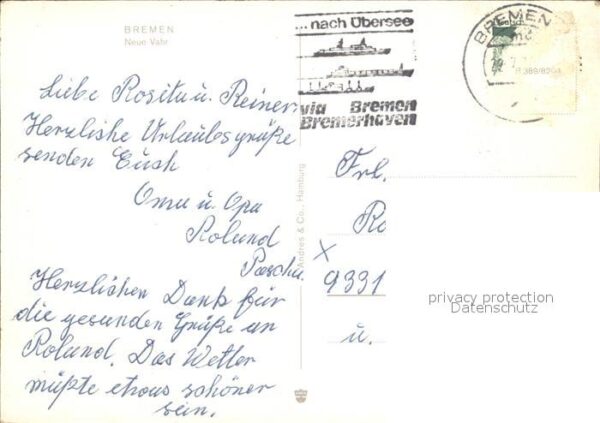 BREMEN
Neue Vahr
Liebe Rosita u. Reiner
Herzliche Urlaubsgrüße
senden Euch
Oma u. Opa
Roland
Herzlichen Dank für
die gesunden Grüße an
Roland. Das Wetter
müßte etwas schöner
sein.
Andres & Co., Hamburg
...nach Übersee
via Bremen
Bremerhaven
BREMEN
Frl.
Ro
9331
u.
privacy protection
Datenschutz